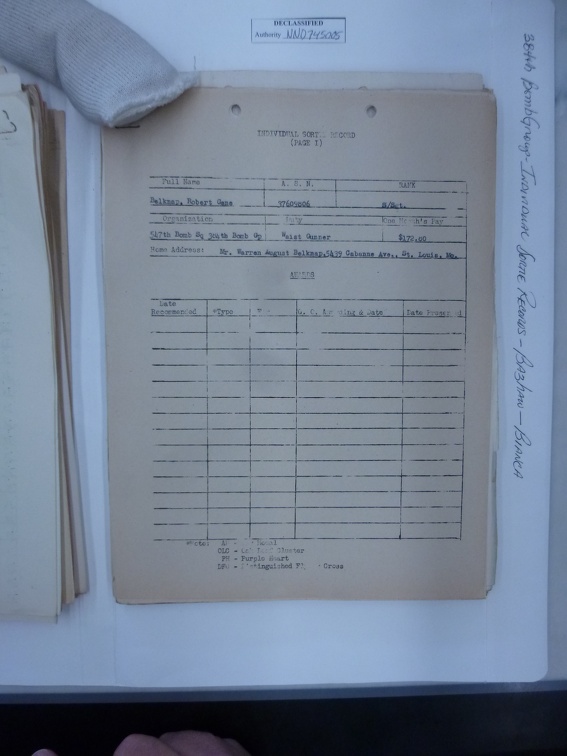 DECLASSIFIED
Authority NND745005
384th BombGroup - Individual Sortie Records - Bazhaw - Bianca
INDIVIDUAL SORTIE RECORD
(PAGE I)
Full Name A. S. N. RANK
Belknap, Robert Gene 37605006 S/Sgt.
Organization Duty One Month's Pay
547th Bomb Sq 384th Bomb Gp Waist Gunner $172.00
Home Address: Mr. Warren August Belknap, 5439 Cabanne Ave., St. Louis, Mo.
AWARDS
Date
Recommended *Type G. O. Awarding & Date Date Presented
*Note: AM - Air Medal
OLC - Oak Leaf Cluster
PH - Purple Heart
DFC - Distinguished Flying Cross